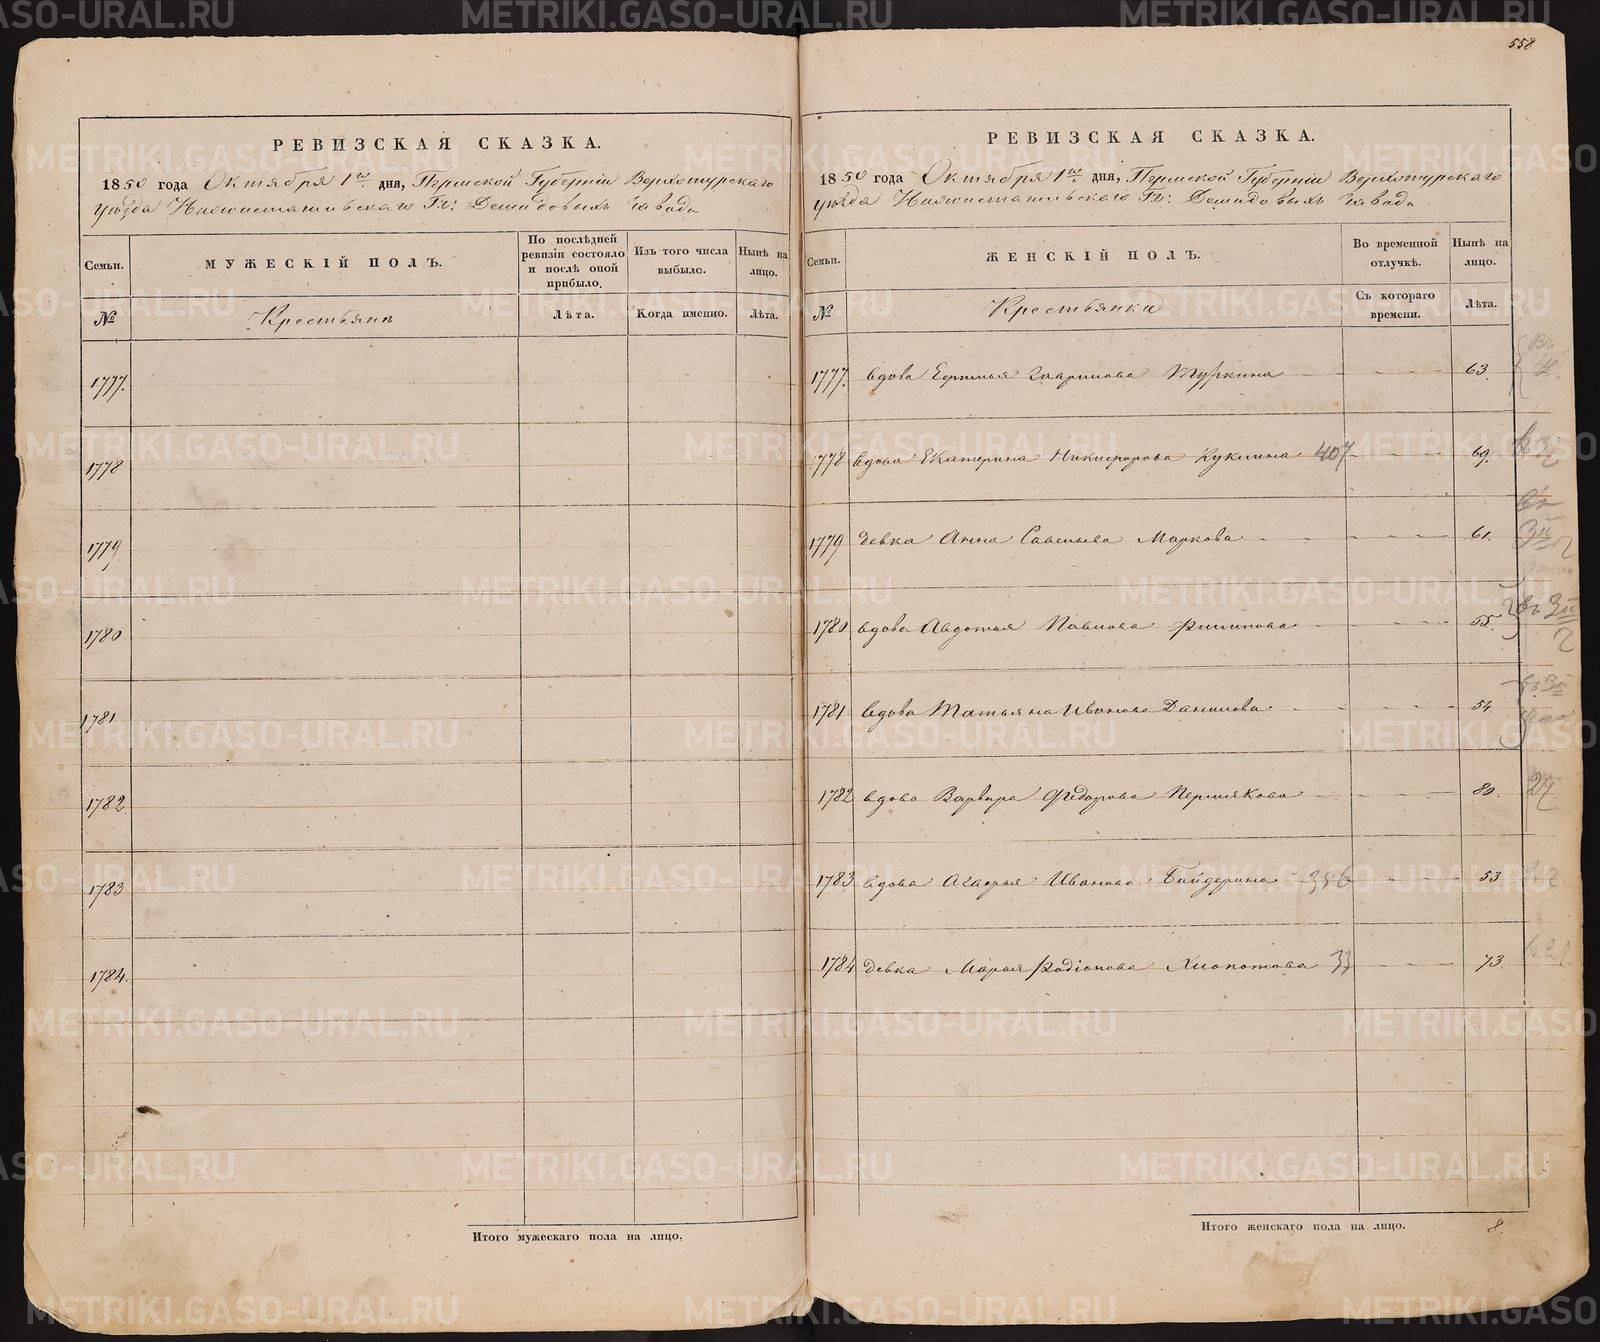 558
РЕВИЗСКАЯ СКАЗКА.
1850 года Октября 1го дня, Пермской Губерніи Верхотурскаго
уѣзда Нижнетагильскаго Гг: Демидовыхъ завода
Семьи.
МУЖЕСКІЙ ПОЛЪ.
По послѣдней ревизіи состояло и послѣ оной прибыло.
Изъ того числа выбыло.
Нынѣ на лицо.
№
Крестьяне
Лѣта.
Когда именно.
Лѣта.
1777.
1778
1779
1780.
1781
1782
1783
1784.
Итого мужескаго пола на лицо.
РЕВИЗСКАЯ СКАЗКА.
1850 года Октября 1го дня, Пермской Губерніи Верхотурскаго
уѣзда Нижнетагильскаго Гг: Демидовыхъ завода
Семьи.
ЖЕНСКІЙ ПОЛЪ.
Во временной отлучкѣ.
Нынѣ на лицо.
№
Крестьянки
Съ котораго времени.
Лѣта.
1777. вдова 63.
1778 вдова Екатерина Никифорова Куклина 407 69.
1779 девка Анна Савельева Маркова 61.
1780 вдова Авдотья Павлова Филипова 55.
1781 вдова Татьяна Иванова Данилова 54.
1782 вдова Варвара Федорова Пермякова 80.
1783 вдова Агафья Иванова Байдерина 356 53
1784 девка Марья Родіонова Хлопотова 33 73.
Итого женскаго пола на лицо. 8.
METRIKI.GASO-URAL.RU